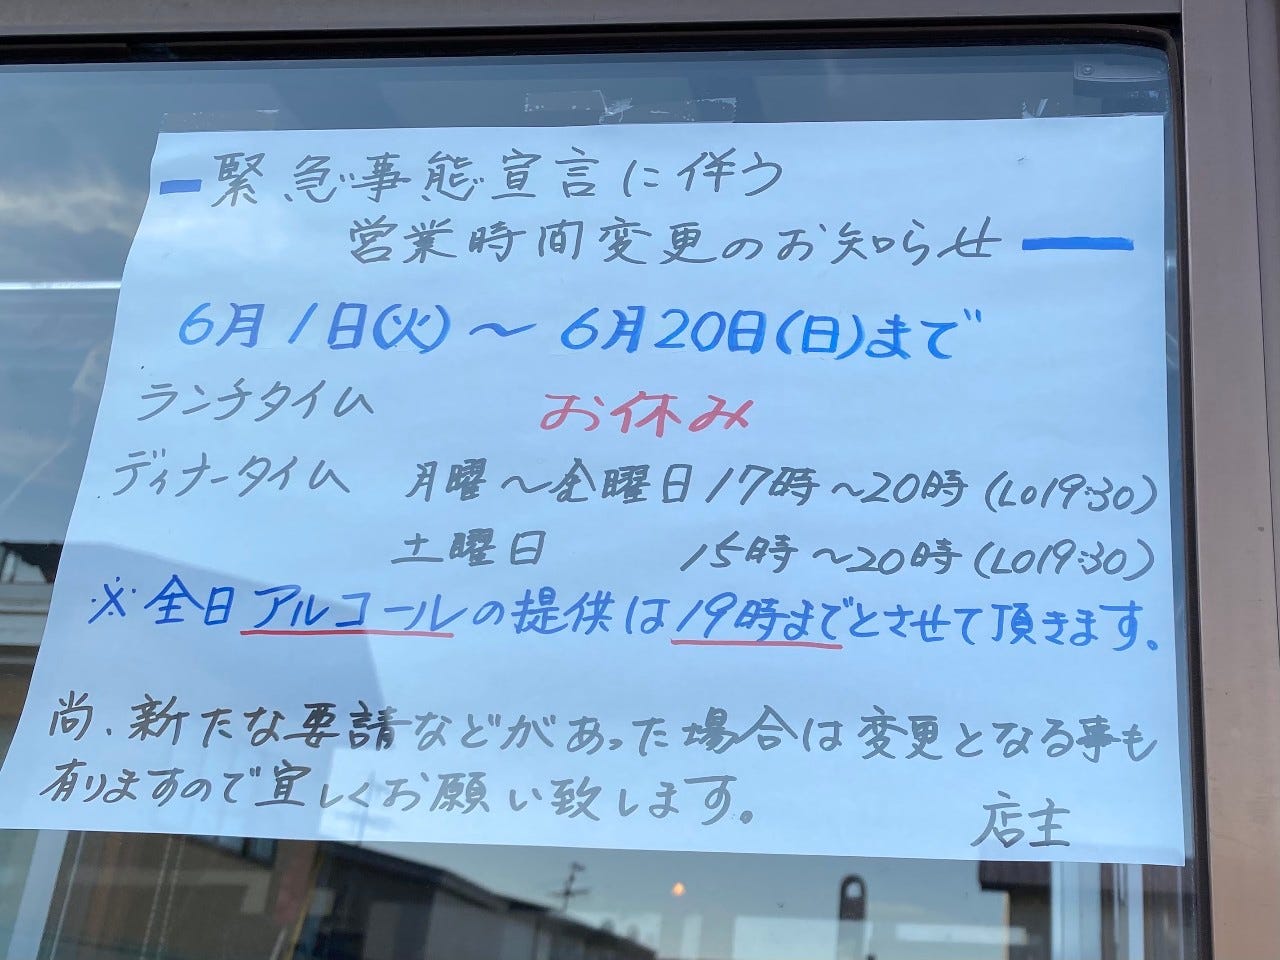 緊急事態宣言に伴う
営業時間変更のお知らせ
6月1日(火)〜6月20日(日)まで
ランチタイム お休み
ディナータイム 月曜〜金曜日17時〜20時(LO19:30)
土曜日 15時〜20時(LO19:30)
※全日アルコールの提供は19時までとさせて頂きます。
尚、新たな要請などがあった場合は変更となる事も
有りますので宜しくお願い致します。
店主